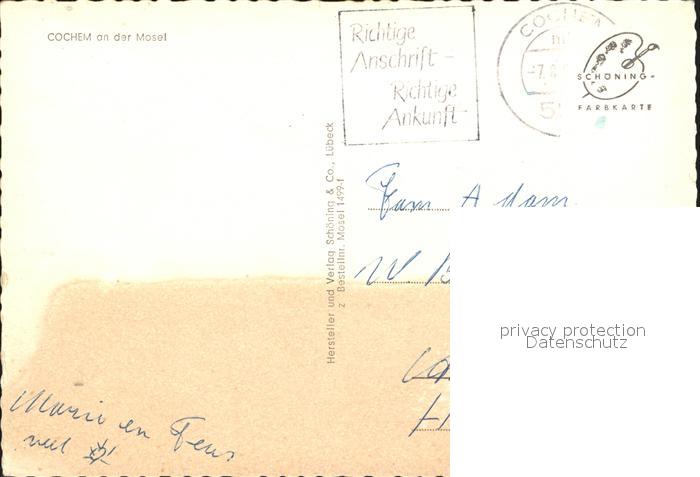 COCHEM an der Mosel
Richtige
Anschrift -
Richtige
Ankunft
COCHEM
SCHÖNING-
FARBKARTE
Hersteller und Verlag Schöning & Co., Lübeck
z Bestellnr. Mosel 1499-f
Fam Adam
W.
privacy protection
Datenschutz
Mario en Feus
veel